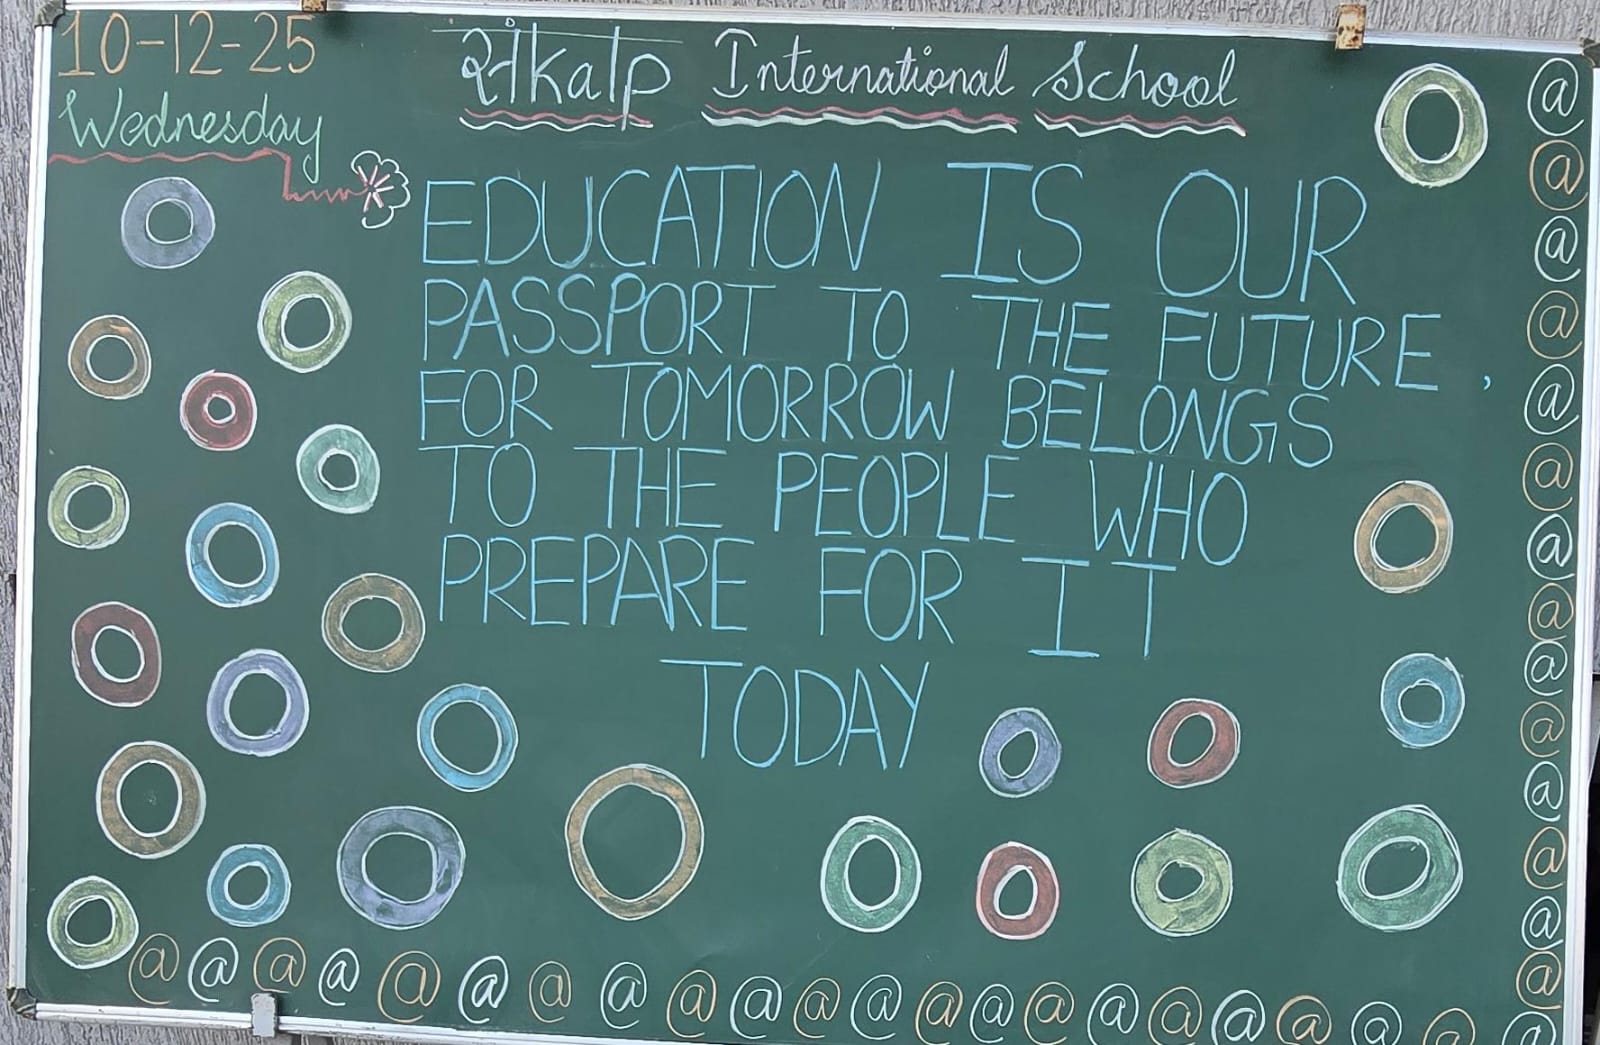 10-12-25
संkalp International School
Wednesday
EDUCATION IS OUR
PASSPORT TO THE FUTURE,
FOR TOMORROW BELONGS
TO THE PEOPLE WHO
PREPARE FOR IT
TODAY
@
@
@
@
@
@
@
@
@
@
@
@
@
@
@ @ @ @ @ @ @ @ @ @ @ @ @ @ @ @ @ @ @ @ @ @